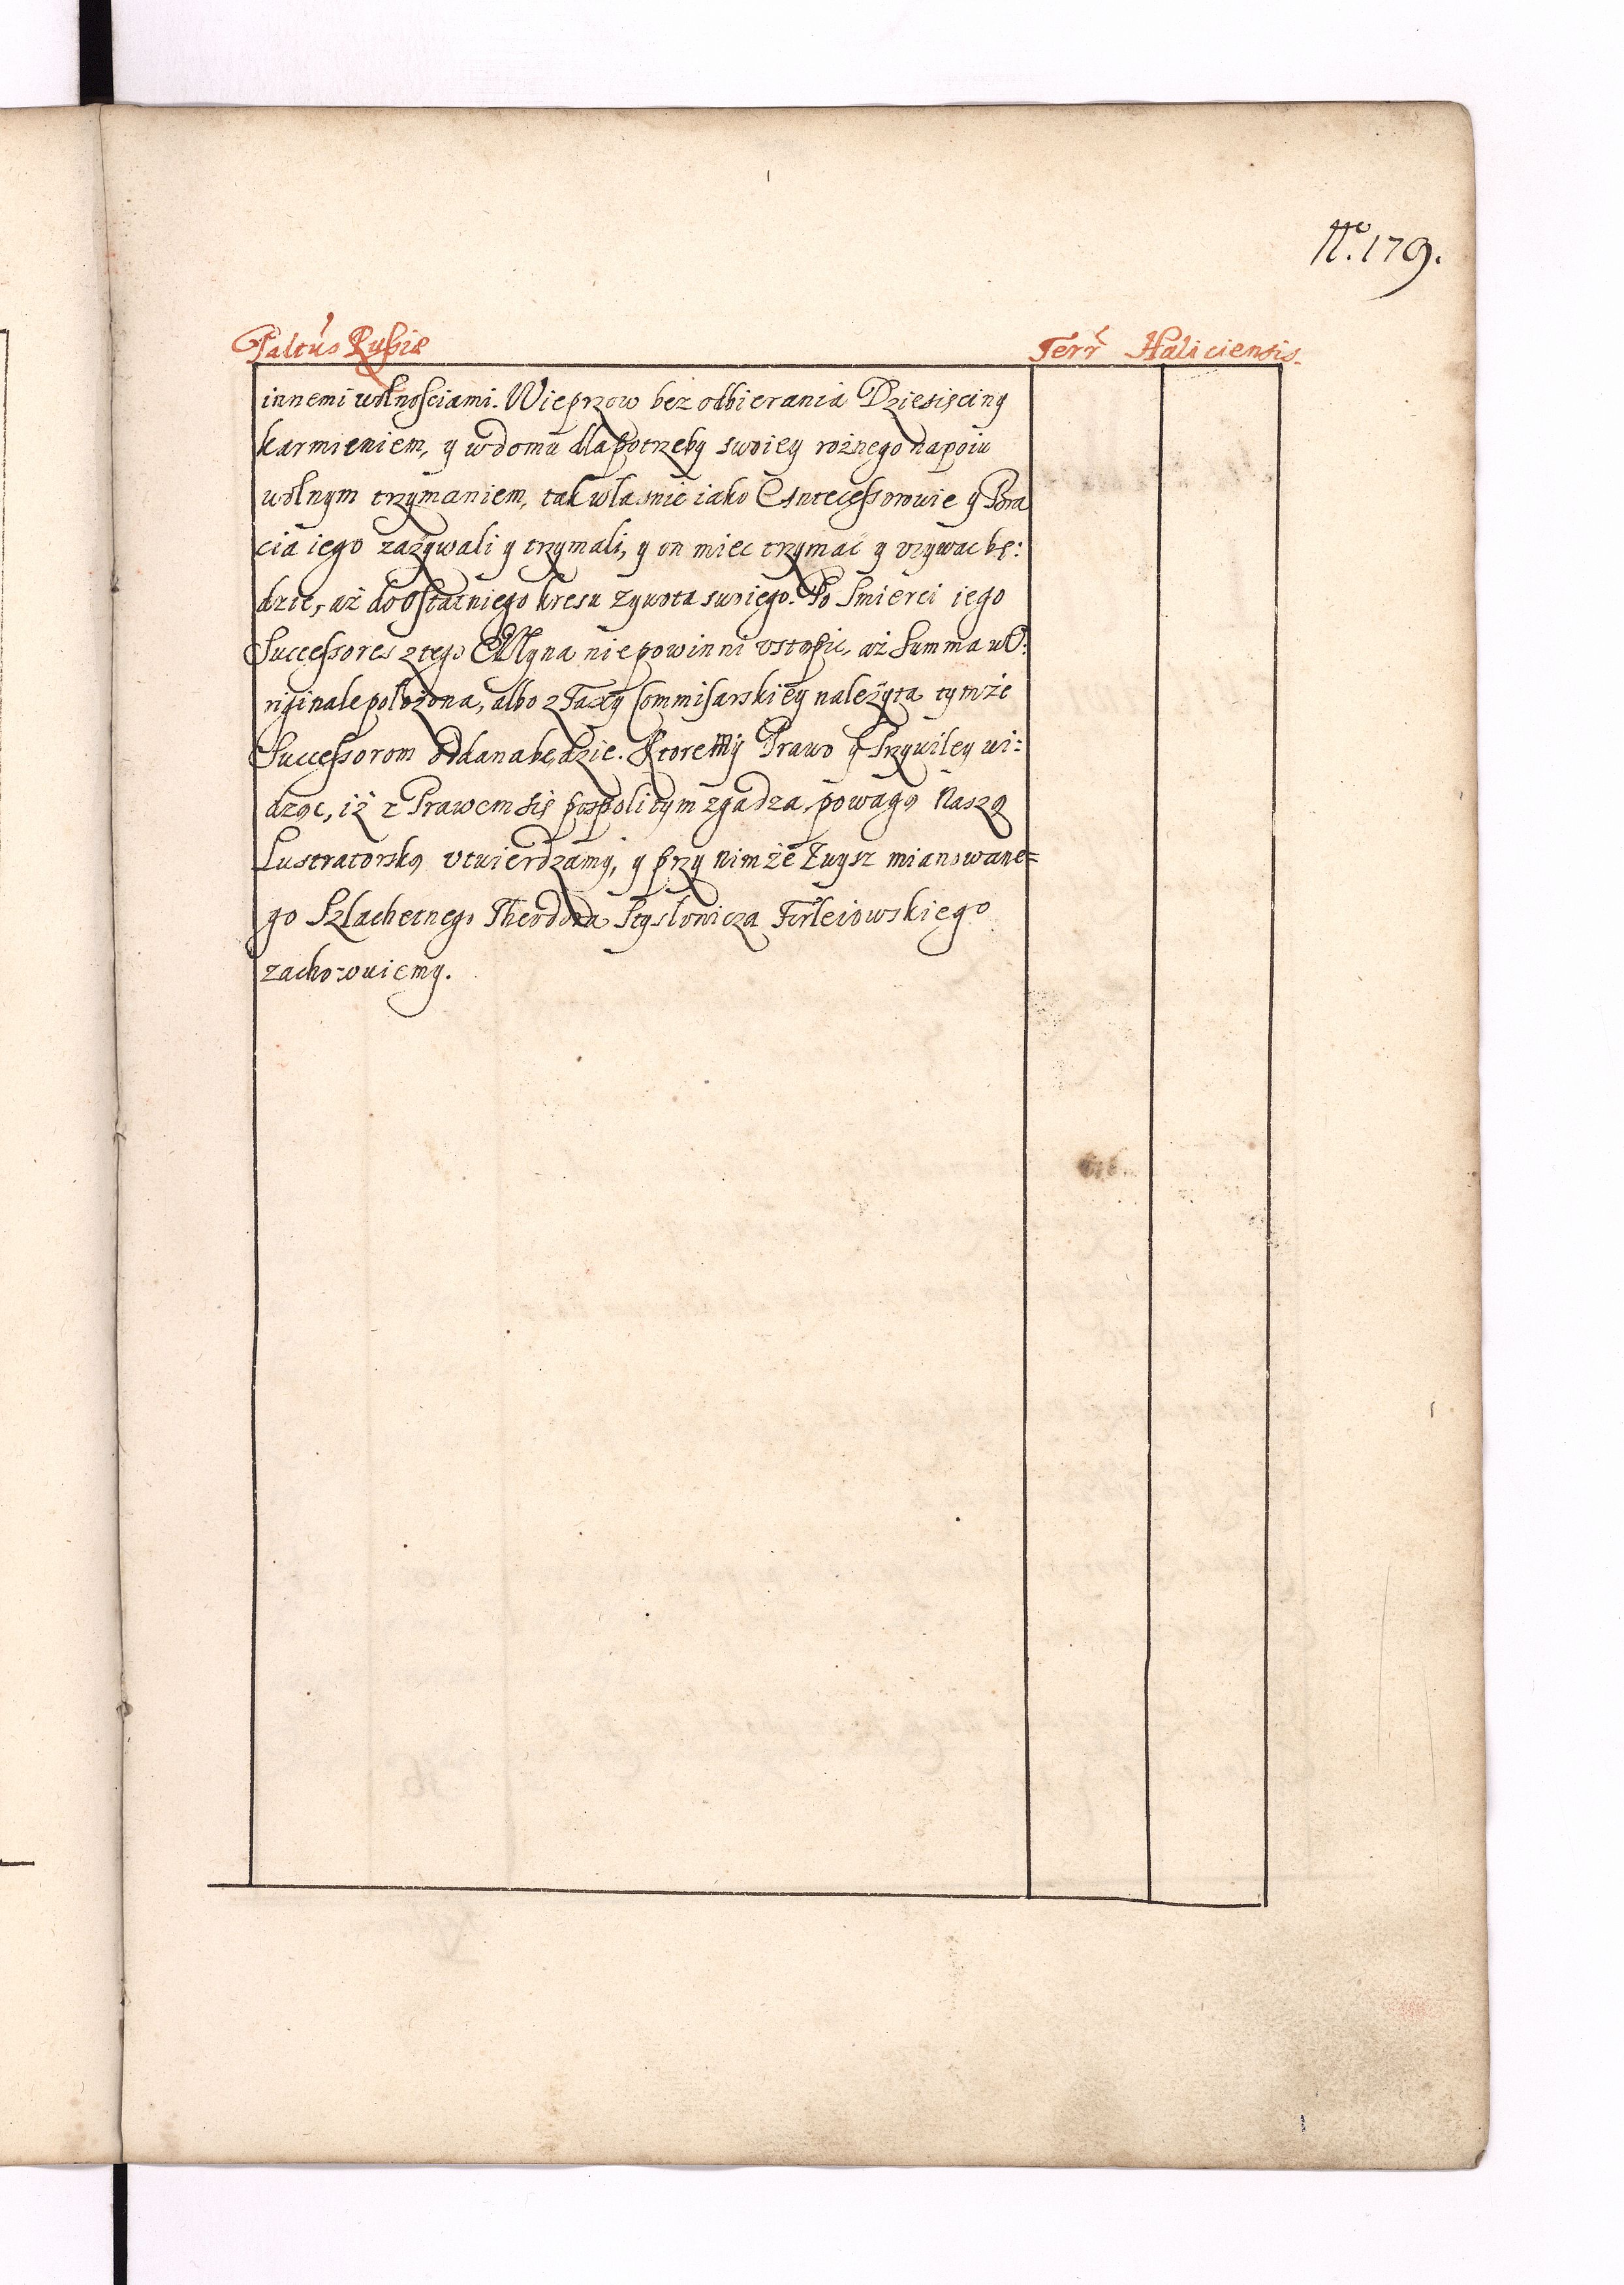 No. 179.
Paltus Russiæ Terr Haliciensis.
innemi wolnosciami. Wieprzow bez odbierania Dziesięciny
karmieniem, y w domu dla potrzeby swoiey rożnego napoiu
wolnym trzymaniem, tak własnie iako Antecessorowie y Bra
cia iego zażywali y trzymali, y on miec trzymać y vżywac bę:
dzie, aż do ostatniego kresu żywota swoiego. Po Smierci iego
Successores z tego Młyna nie powinni vstąpic, aż Summa w O:
riginale położona, albo z Taxy Commisarskiey należyta tymże
Successorom oddana będzie. Ktore My Prawo y Przywiley wi:
dząc, iż z Prawem się pospolitym zgadza, powagą Naszą
Lustratorską vtwierdzamy, y przy nimże Zwysz mianowane=
go Szlachetnego Theodora Stysłowicza Ferleiowskiego
zachowuiemy.